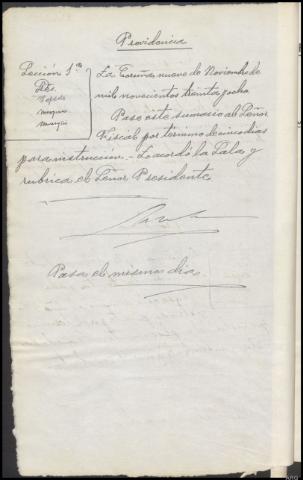 Providencia
Sección 1ª
Ptes.
La Coruña nueve de Noviembre de
mil novecientos treinta y ocho
Pase este sumario al Señor
Fiscal por termino de cinco dias
para instruccion.- Lo acordó la Sala y
rubrica el Señor Presidente
Pasa el mismo dia.